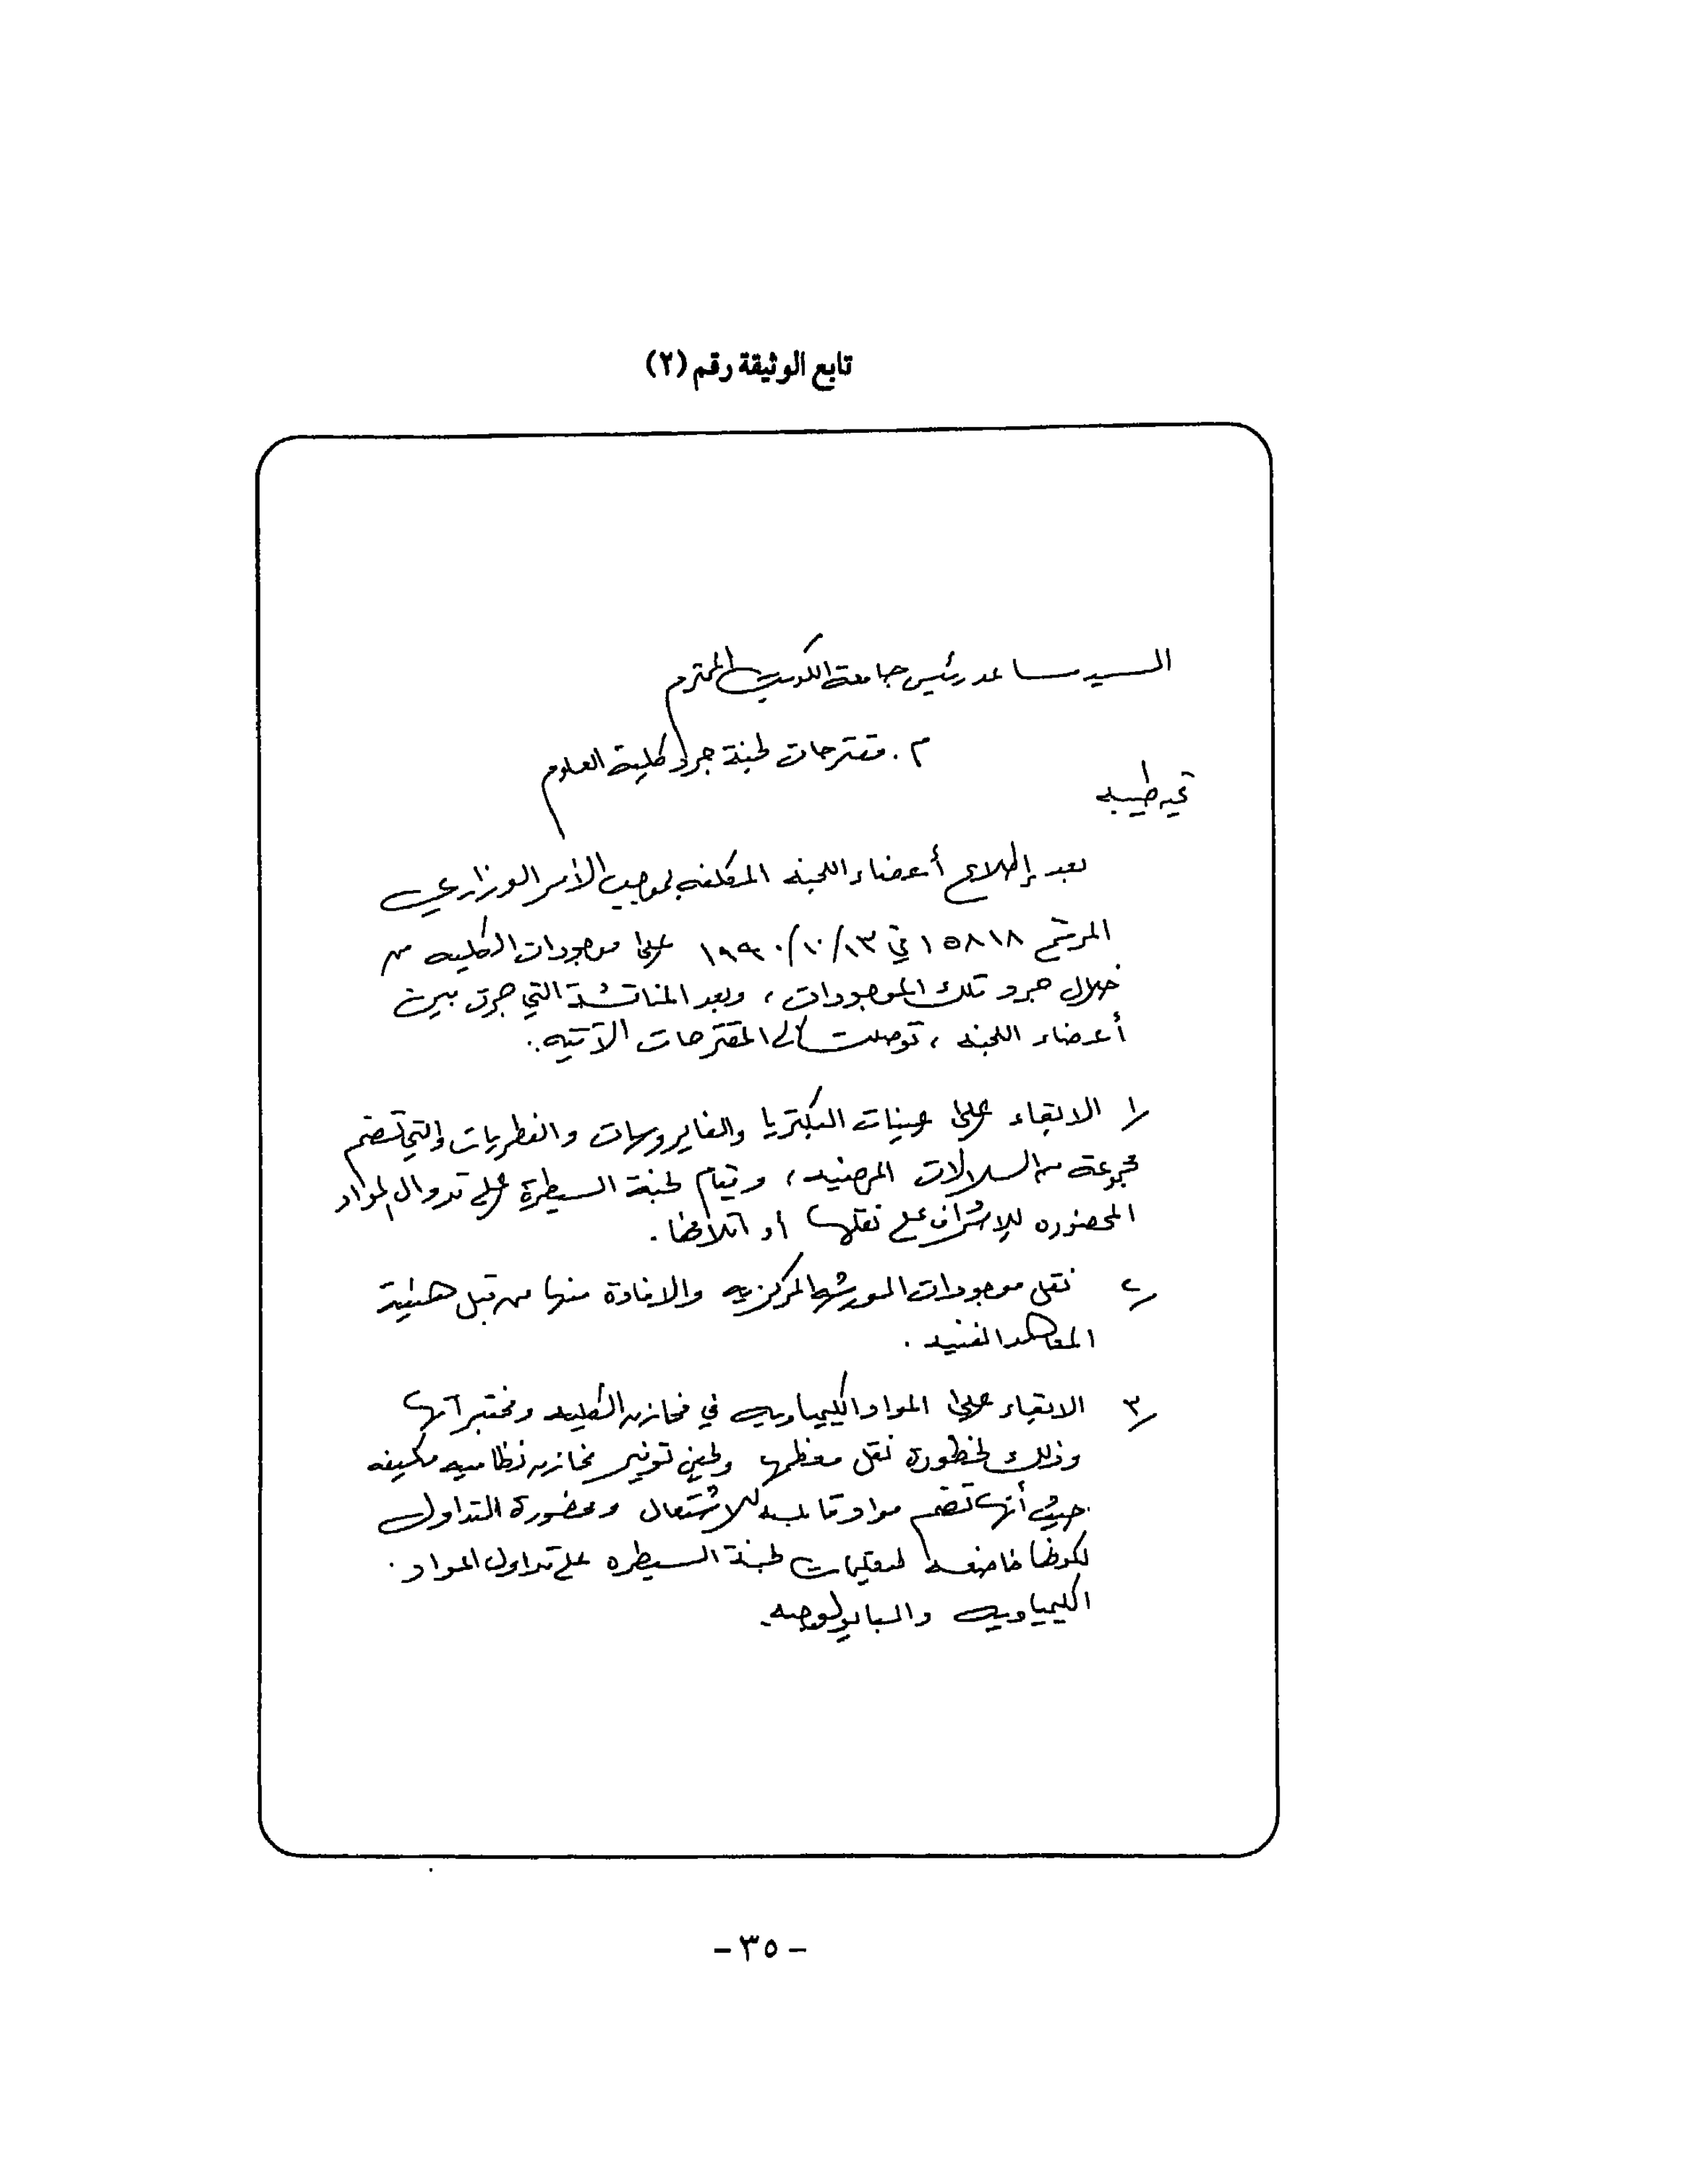 تابع الوثيقة رقم (٢)
السيد مساعد رئيس جامعة الكويت المحترم
م . مقترحات لجنة جرد كلية العلوم
تحيه طيبه
بعد إطلاع أعضاء اللجنه المكلفه بموجب الأمر الوزاري
المرقم ١٥٨١٨ في ١٩٩٠/١٠/١٣ على موجودات الكليه من
خلال جرد تلك الموجودات ، وبعد المناقشة التي جرت بين
أعضاء اللجنه ، توصلت الى المقترحات الآتيه :.
١/ الابقاء على عينات البكتريا والفايروسات والفطريات والتي تضم
مجموعة من السلالات المرضيه ، وقيام لجنة السيطرة على تدوال المواد
المحضوره للإشراف على نقلها أو اتلافها .
٢/ نقل موجودات الورشه المركزيه والافادة منها من قبل هيئة
المعاهد الفنيه .
٣/ الابقاء على المواد الكيمياويه في مخازن الكليه ومختبراتها
وذلك لخطورة نقل معظمها ولحين توفير مخازن نظاميه مكيفه
حيث أنها تضم مواد قابله للاشتعال ومحضورة التداول
لكونها خاضعه لتعليمات لجنة السيطره على تداول المواد
الكيمياويه والبايولوجيه .
- ٣٥ -